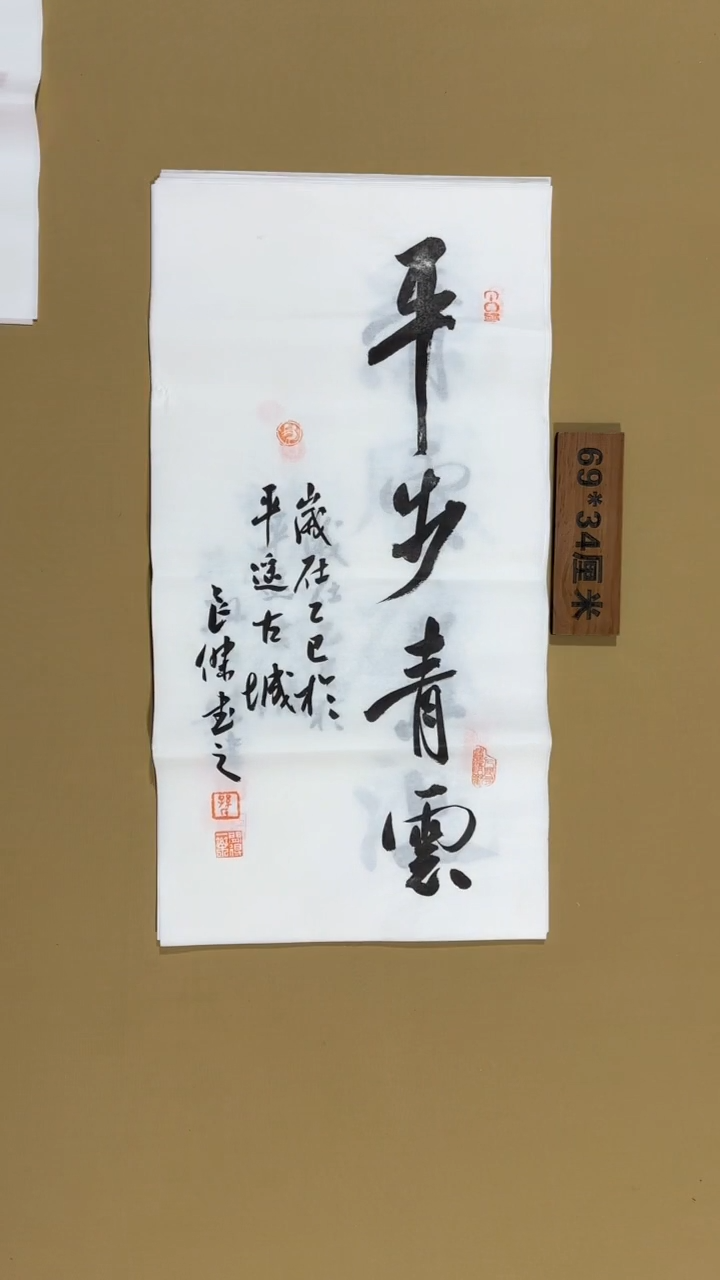 平步青雲
歲在乙巳於
平遥古城
長健書之
69*34厘米